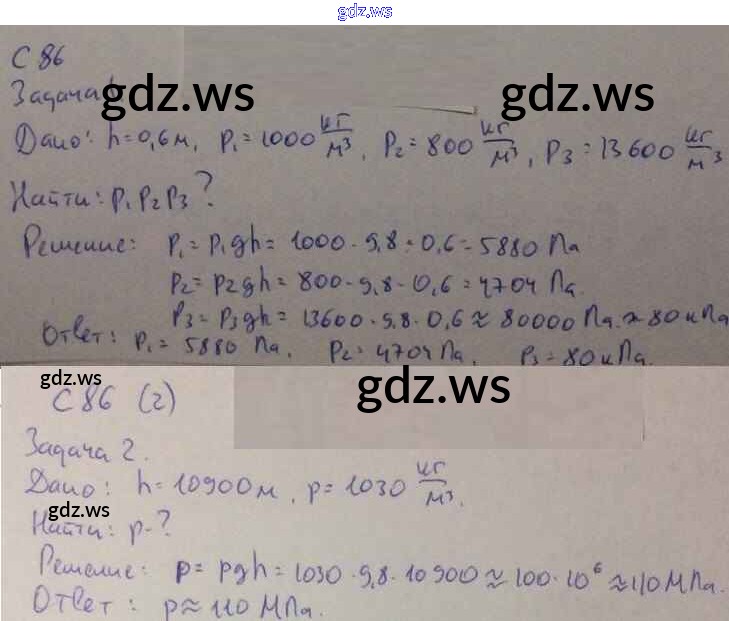 gdz.ws
С 86
Задача 1
gdz.ws
gdz.ws
Дано: h=0,6м, ρ₁=1000 кг/м³, ρ₂=800 кг/м³, ρ₃=13600 кг/м³
Найти: p₁ p₂ p₃?
Решение: p₁=ρ₁gh=1000·9,8·0,6=5880 Па
p₂=ρ₂gh=800·9,8·0,6=4704 Па.
p₃=ρ₃gh=13600·9,8·0,6≈80000 Па≈80кПа
Ответ: p₁=5880 Па. p₂=4704Па. p₃=80кПа.
gdz.ws
gdz.ws
С 86 (2)
Задача 2.
Дано: h=10900м, ρ=1030 кг/м³.
gdz.ws
Найти: p-?
Решение: p=ρgh=1030·9,8·10900≈100·10⁶≈110МПа.
Ответ: p≈110 МПа.